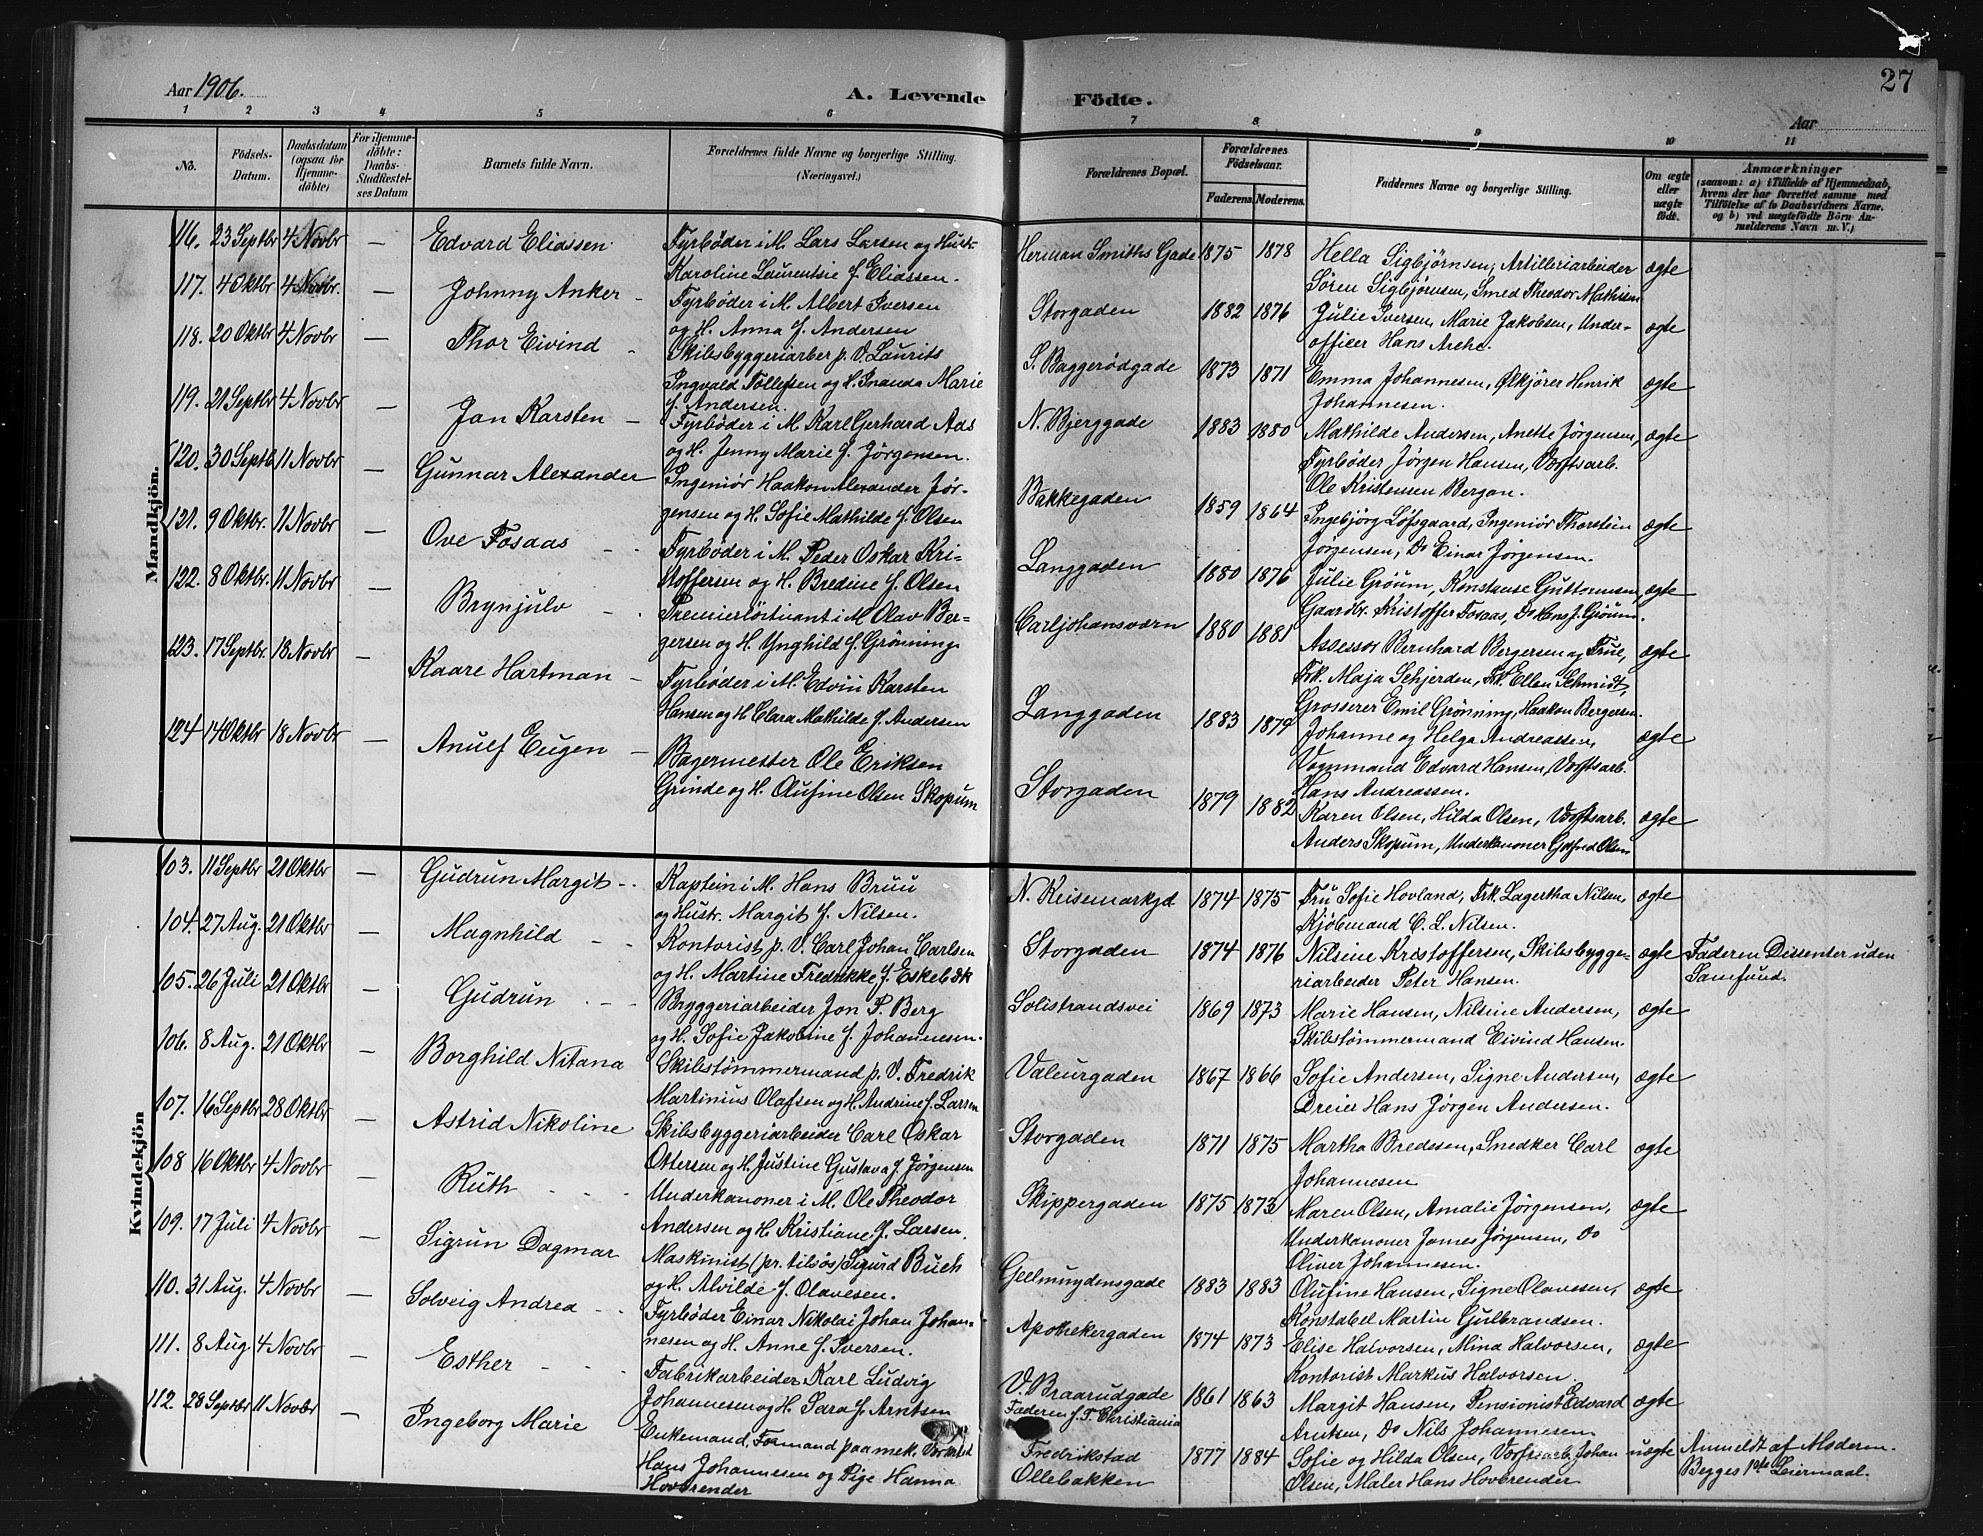 Aar 1906.
A. Levende Födte.
27
Aar
1 2 3 4 5 6 7 8 9 10 11
No.
Födsels-Datum.
Daabsdatum (ogsaa for Hjemme-döbte)
For Hjemme-döbte: Daabs-Stadfæstel-ses Datum
Barnets fulde Navn.
Forældrenes fulde Navne og borgerlige Stilling. (Næringsvei.)
Forældrenes Bopæl.
Forældrenes Födselsaar.
Faderens. Moderens.
Faddernes Navne og borgerlige Stilling.
Om ægte eller uægte födt.
Anmærkninger
(saasom: a) i Tilfælde af Hjemmedaab,
hvem der har forrettet samme med
Tilföielse af to Daabsvidners Navne.
og b) ved uægtefödte Börn An-
melderens Navn m. V.)
Mandkjön.
116. 23 Septbr 4 Novbr — Edvard Eliassen Fyrböder i M. Lars Larsen og Hustr. Karoline Laurentsie f. Eliassen. Herman Smiths Gade 1875 1878 Hella Sigbjörnsen, Artilleriarbeider Sören Sigbjörnsen, Smed Theodor Mathisen ægte
117. 4 Oktbr 4 Novbr. — Johnny Anker Fyrböder i M. Albert Iversen og H. Anna f. Andersen Storgaden 1882 1876 Julie Iversen, Marie Jakobsen, Under-officer Hans Arche. ægte
118. 20 Oktbr 4 Novbr — Thor Eivind Skibsbyggeriarber p. V. Laurits Ingvald Tollefsen og H. Inanda Marie f. Andersen. S. Baggerödgade 1873 1871 Emma Johannesen, Ølkjörer Henrik Johannesen. ægte
119. 21 Septbr 4 Novbr — Jan Karsten Fyrböder i M. Karl Gerhard Aas og H. Jenny Marie f. Jörgensen. N. Bjerggade 1883 1880 Mathilde Andersen, Anette Jörgensen, Fyrböder Jörgen Hansen, Værftsarb. Ole Kristensen Bergan. ægte
120. 30 Septbr 11 Novbr — Gunnar Alexander Ingeniör Haakon Alexander Jör-gensen og H. Sofie Mathilde f. Olsen Bakkegaden 1859 1864 Ingebjörg Löfsgaard, Ingeniör Thorstein Jörgensen, Do Einar Jörgensen. ægte
121. 9 Oktbr. 11 Novbr — Ove Fosaas Fyrböder i M. Peder Oskar Kri-stoffersen og H. Bredine f. Olsen Langgaden 1880 1876 Julie Gröum, Konstanse Guttormsen, Gaardbr. Kristoffer Fosaas, Do Hans J. Gröum. ægte
122. 8 Oktbr. 11 Novbr — Brynjulv Premierlöitnant i M. Olav Ber-gersen og H. Ynghild f. Grönning Carljohansværn 1880 1881 Assessor Bernhard Bergersen og Frue, Frk. Maja Schjerden, Frk. Ellen Schmidt, Grosserer Emil Grönning, Haakon Bergersen. ægte
123. 17 Septbr. 18 Novbr — Kaare Hartman Fyrböder i M. Edvin Karsten Hansen og H Clara Mathilde f. Andersen Langgaden 1883 1879 Johanne og Helga Andreassen, Vognmand Edvard Hansen, Værftsarb. Hans Andreassen. ægte
124 14 Oktbr 18 Novbr — Anulf Eugen Bagermester Ole Eriksen Grinde og H. Olufine Olsen Skopum Storgaden 1879 1882 Karen Olsen, Hilda Olsen, Værftsarb. Anders Skopum, Underkanoner Gotfred Olsen ægte
Kvindekjön
103. 11 Septbr 21 Oktbr — Gudrun Margit Kaptein i M. Hans Bruu og Hustr. Margit f. Nilsen. N. Keisemarkgd 1874 1875 Fru Sofie Hovland, Frk. Lagertha Nilsen, Kjöbmand C. L. Nilsen. ægte
104. 27 Aug. 21 Oktbr — Magnhild Kontorist p. V. Carl Johan Carlsen og H. Martine Fredrikke f. Eskebæk Storgaden 1874 1876 Nilsine Kristoffersen, Skibsbygge-riarbeider Peter Hansen. ægte Faderen Dissenter uden Samfund.
105. 26 Juli 21 Oktbr — Gudrun Bryggeriarbeider Jon P. Berg og H. Sofie Jakobine f. Johannesen. Solistrandsvei 1869 1873 Marie Hansen, Nilsine Andersen, Skibstömmermand Eivind Hansen. ægte
106. 8 Aug. 21 Oktbr — Borghild Nitana Skibstömmermand p. V. Fredrik Martinius Olafsen og H. Andrine f. Larsen Valeurgaden 1867 1866 Sofie Andersen, Signe Andersen, Dreier Hans Jörgen Andersen. ægte
107. 16 Septbr 28 Oktbr — Astrid Nikoline Skibsbyggeriarbeider Carl Oskar Ottersen og H. Justine Gustava f. Jörgensen Storgaden 1871 1875 Martha Bredesen, Snedker Carl Johannesen ægte
108 16 Oktbr 4 Novbr — Ruth Underkanoner i M. Ole Theodor Andersen og H. Kristiane f. Larsen. Skippergaden 1875 1873 Maren Olsen, Amalie Jörgensen, Underkanoner James Jörgensen, Do Oliver Johannesen. ægte
109. 17 Juli 4 Novbr — Sigrun Dagmar Maskinist (pr. tilsös) Sigurd Buch og H. Alvilde f. Olavesen. Geelmuydensgade 1883 1883 Olufine Hansen, Signe Olavesen, Konstabel Martin Gulbrandsen. ægte
110. 31 Aug. 4 Novbr — Solveig Andrea Fyrböder Einar Nikolai Johan Johan-nesen og H. Anne f. Iversen. Apothekergaden 1874 1873 Elise Halvorsen, Mina Halvorsen, Kontorist Markus Halvorsen. ægte
111. 8 Aug 4 Novbr — Esther Fabrikarbeider Karl Ludvig Johannesen og H. Sara f. Arntsen V. Braarudgade 1861 1863 Margit Hansen, Pensionist Edvard Arntsen, Do Nils Johannesen ægte
112. 28 Septbr 11 Novbr — Ingeborg Marie Enkemand, Formand paa mek. Værksted Hans Johannesen og Pige Hanna Hovbrender Faderen f. T. Christiania Fredrikstad Ollebakken 1877 1884 Sofie og Hilda Olsen, Værftsarb. Johan Olsen, Maler Hans Hovbrender uægte Anmeldt af Moderen. Begges 1ste Leiermaal.